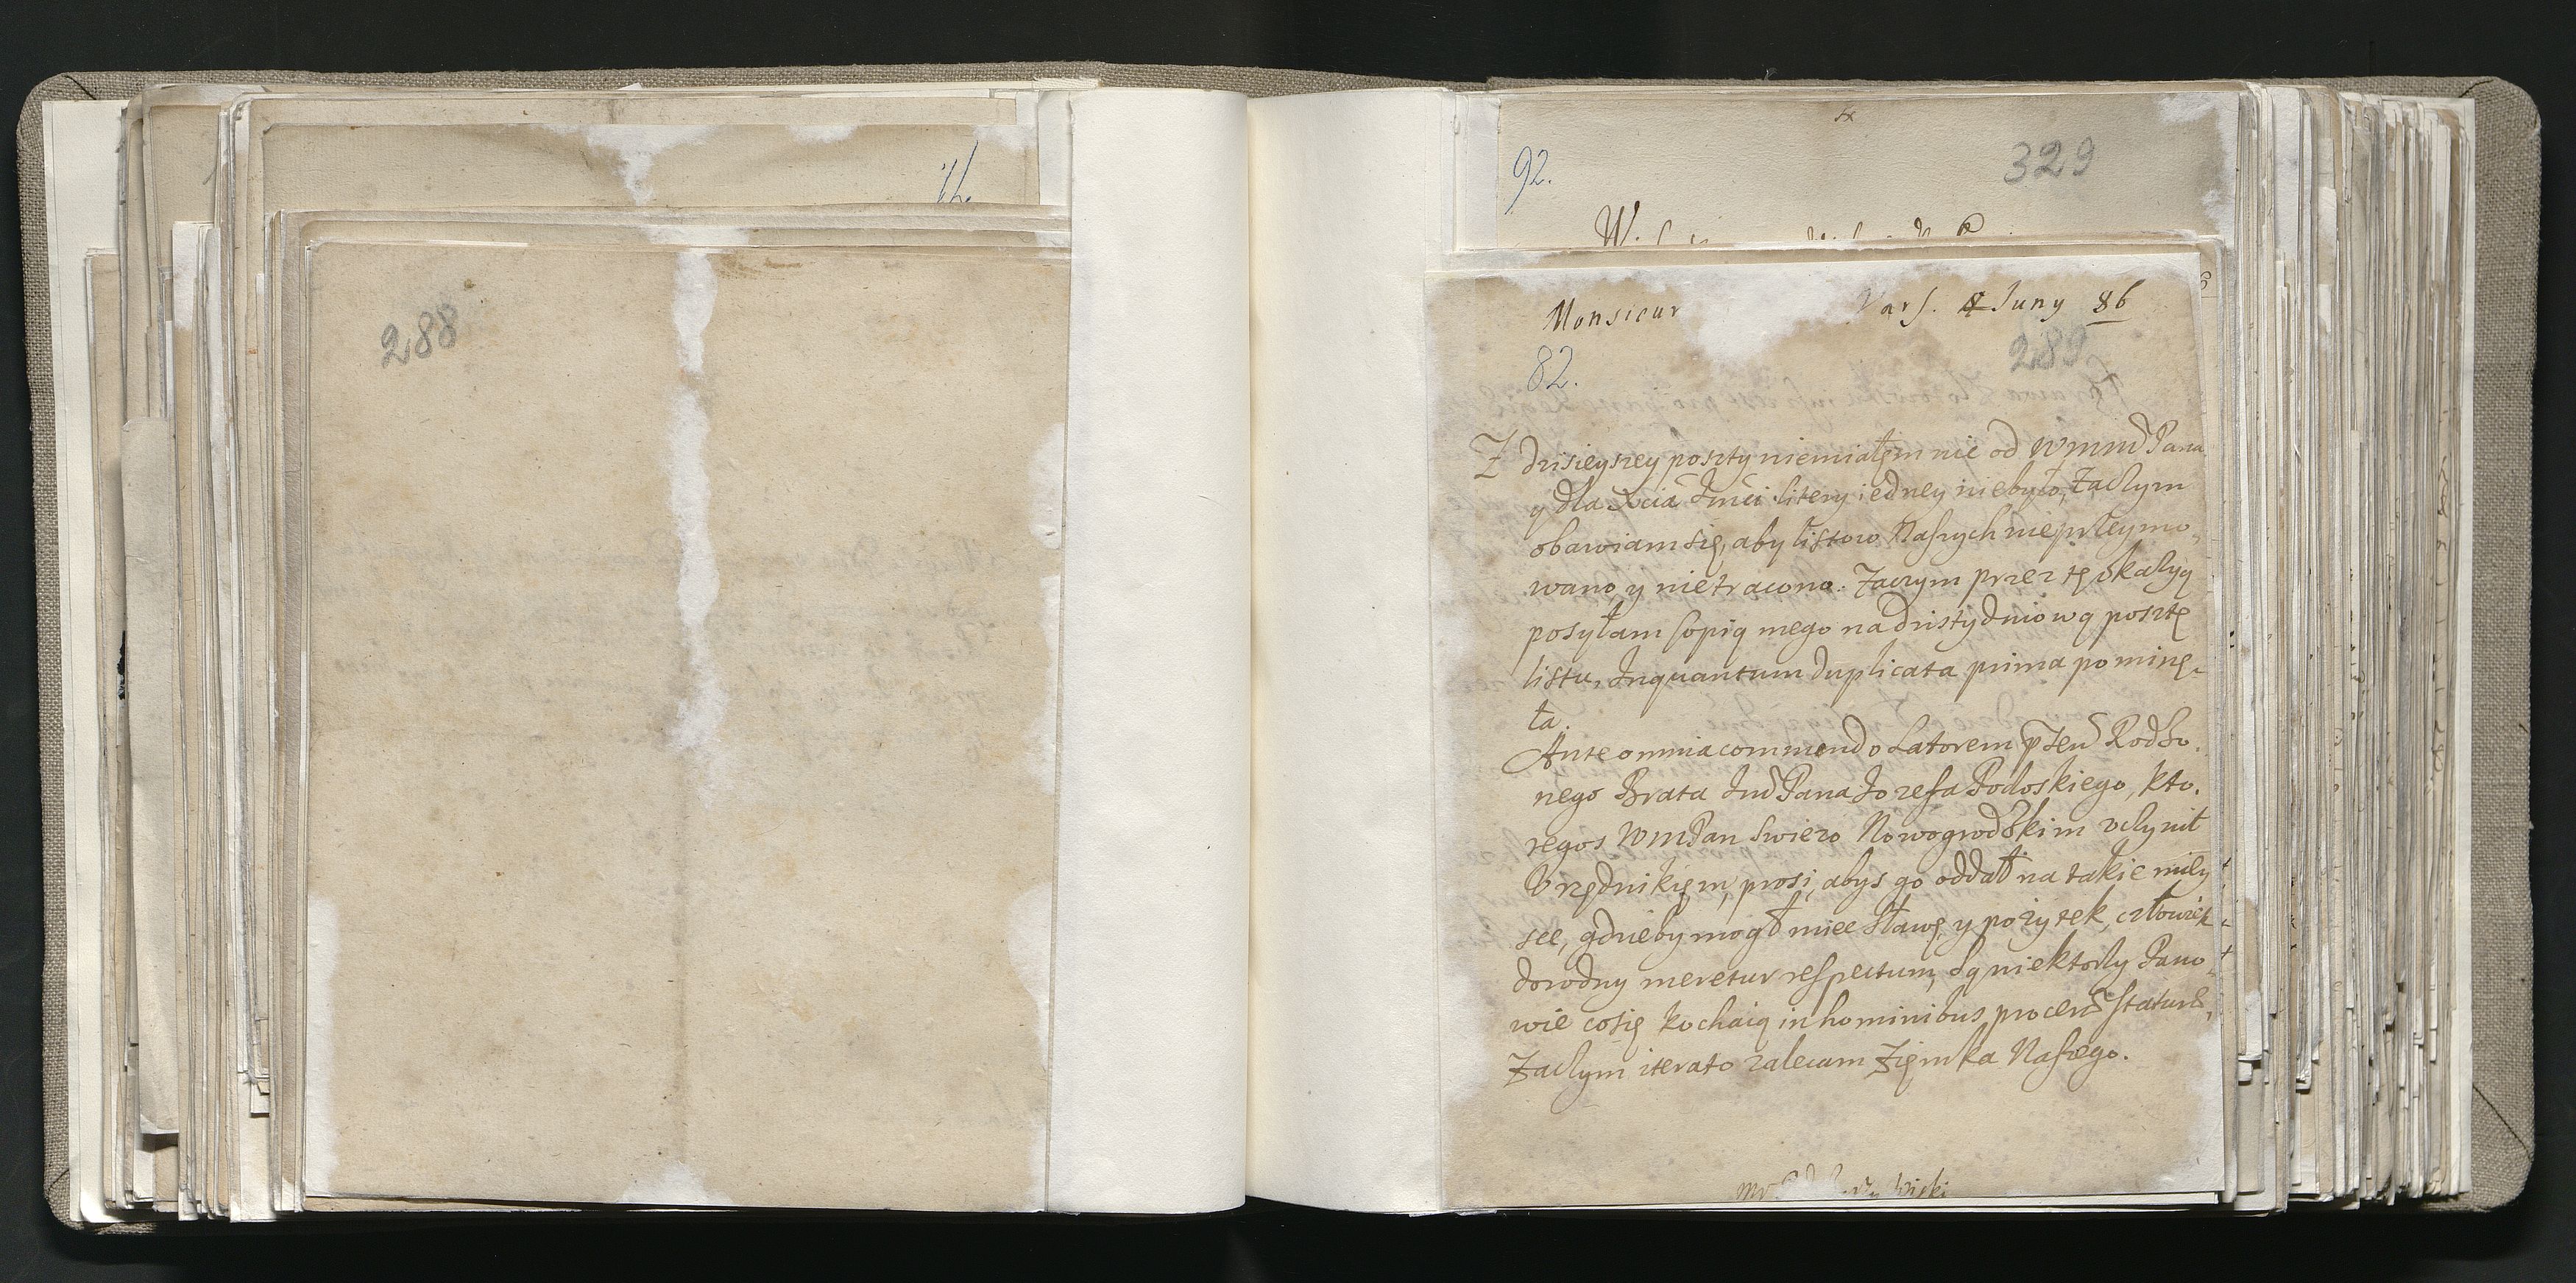 288
92.
329
Monsieur Vars. 8 Juny 86
82.
289
Z dzisieyszey poszty niemiałęm nic od WMM Pana
y dla Xcia Jmci litery iedney niebyło, Zaczym
obawiam się, aby listow Naszych nieprzeymo,
wano, y nietracono. Zaczym przez tę okazyą
posyłam kopią mego na dzistydniową posztę
listu, Inquantum duplicata prima pominę,
ła.
Ante omnia commendo Latorem Rodzo,
nego Brata Pana Jozefa Podoskiego, kto,
regos WMPan swiezo Nowogrodzkim vczynił
Vrzędnikięm, prosi, abys go oddał na takie miey
sce, gdzieby mogł miec Sławę y pożytek, człowiek
dorodny meretur respectum, Są niektorzy Pano,
wie cosię kochaią in hominibus staturæ,
Zaczym iterato zalecam Zięmka Naszego.